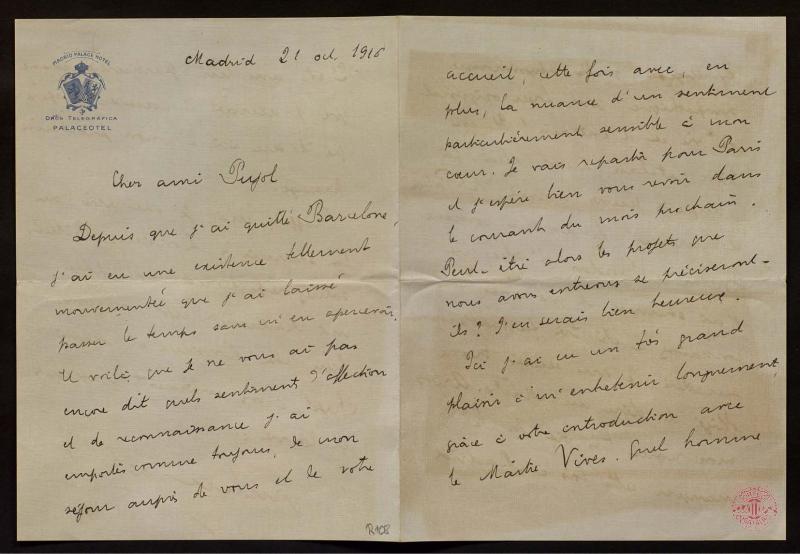 MADRID PALACE HOTEL
DIRÓN TELEGRÁFICA
PALACEOTEL
Madrid 21 oct. 1916
Cher ami Pujol
Depuis que j'ai quitté Barcelone,
j'ai eu une existence tellement
mouvementée que j'ai laissé
passer le temps sans m'en apercevoir.
Et voilà que je ne vous ai pas
encore dit quels sentiments d'affection
et de reconnaissance j'ai
emportés comme toujours, de mon
séjour auprès de vous et de votre
R108
accueil, cette fois avec, en
plus, la nuance d'un sentiment
particulièrement sensible à mon
cœur. Je vais repartir pour Paris
et j'espère bien vous revoir dans
le courant du mois prochain.
Peut-être alors les projets que
nous avons entrevus se préciseront-
ils? J'en serais bien heureux.
Ici j'ai eu un très grand
plaisir à m'entretenir longuement,
grâce à votre introduction avec
le Maître Vives. Quel homme